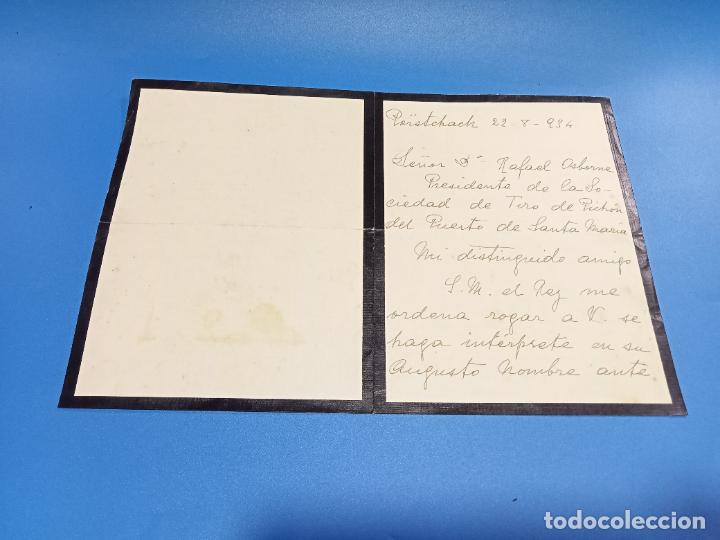 Pörstchach 22-8-934
Señor Dn Rafael Osborne
Presidente de la So-
ciedad de Tiro de Pichón
del Puerto de Santa María
Mi distinguido amigo
S.M. el Rey me
ordena rogar a V. se
haga intérprete en su
Augusto Nombre ante
todocoleccion
todocoleccion.net